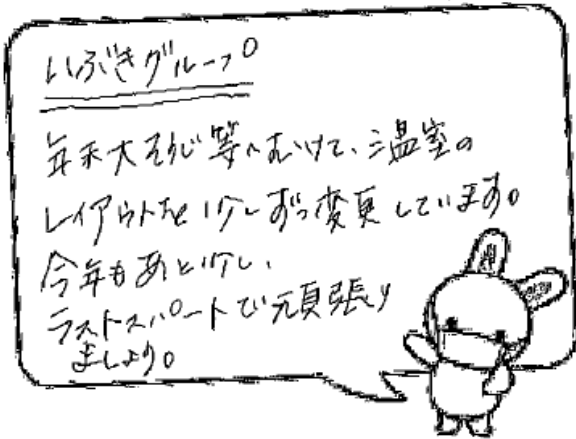 いぶきグループ
年末大そうじ等へむけて、温室の
レイアウトを少しずつ変更しています。
今年もあと少し、
ラストスパートで頑張り
ましょう。